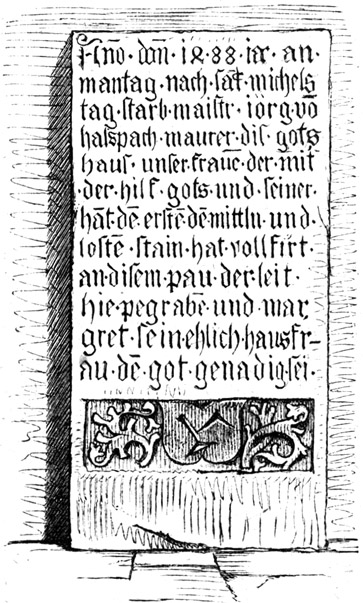 Anno · dom̄ · 1488 · iar · an ·
mantag · nach · sāt · michels
tag · starb · maistr · iörg · vō
halspach · maurer · dis · gots
haus · unser · frauē · der · mit
· der · hilf · gots · und · seiner ·
hāt · dē · erstē · dē · mittln · und ·
lostē · stain · hat · vollfirt ·
an · disem · pau · der · leit ·
hie · pegrabē · und · mar
gret · sein · ehlich · hausfr–
au · dē · got · genadig · sei ·